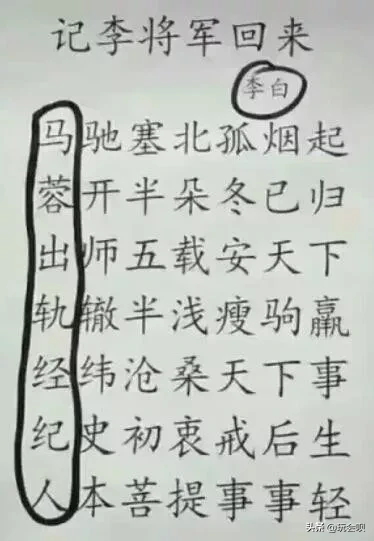 记李将军回来
李白
马驰塞北孤烟起
蓉开半朵冬已归
出师五载安天下
轨辙半浅瘦驹羸
经纬沧桑天下事
纪史初衷戒后生
人本菩提事事轻
头条@玩尝呗